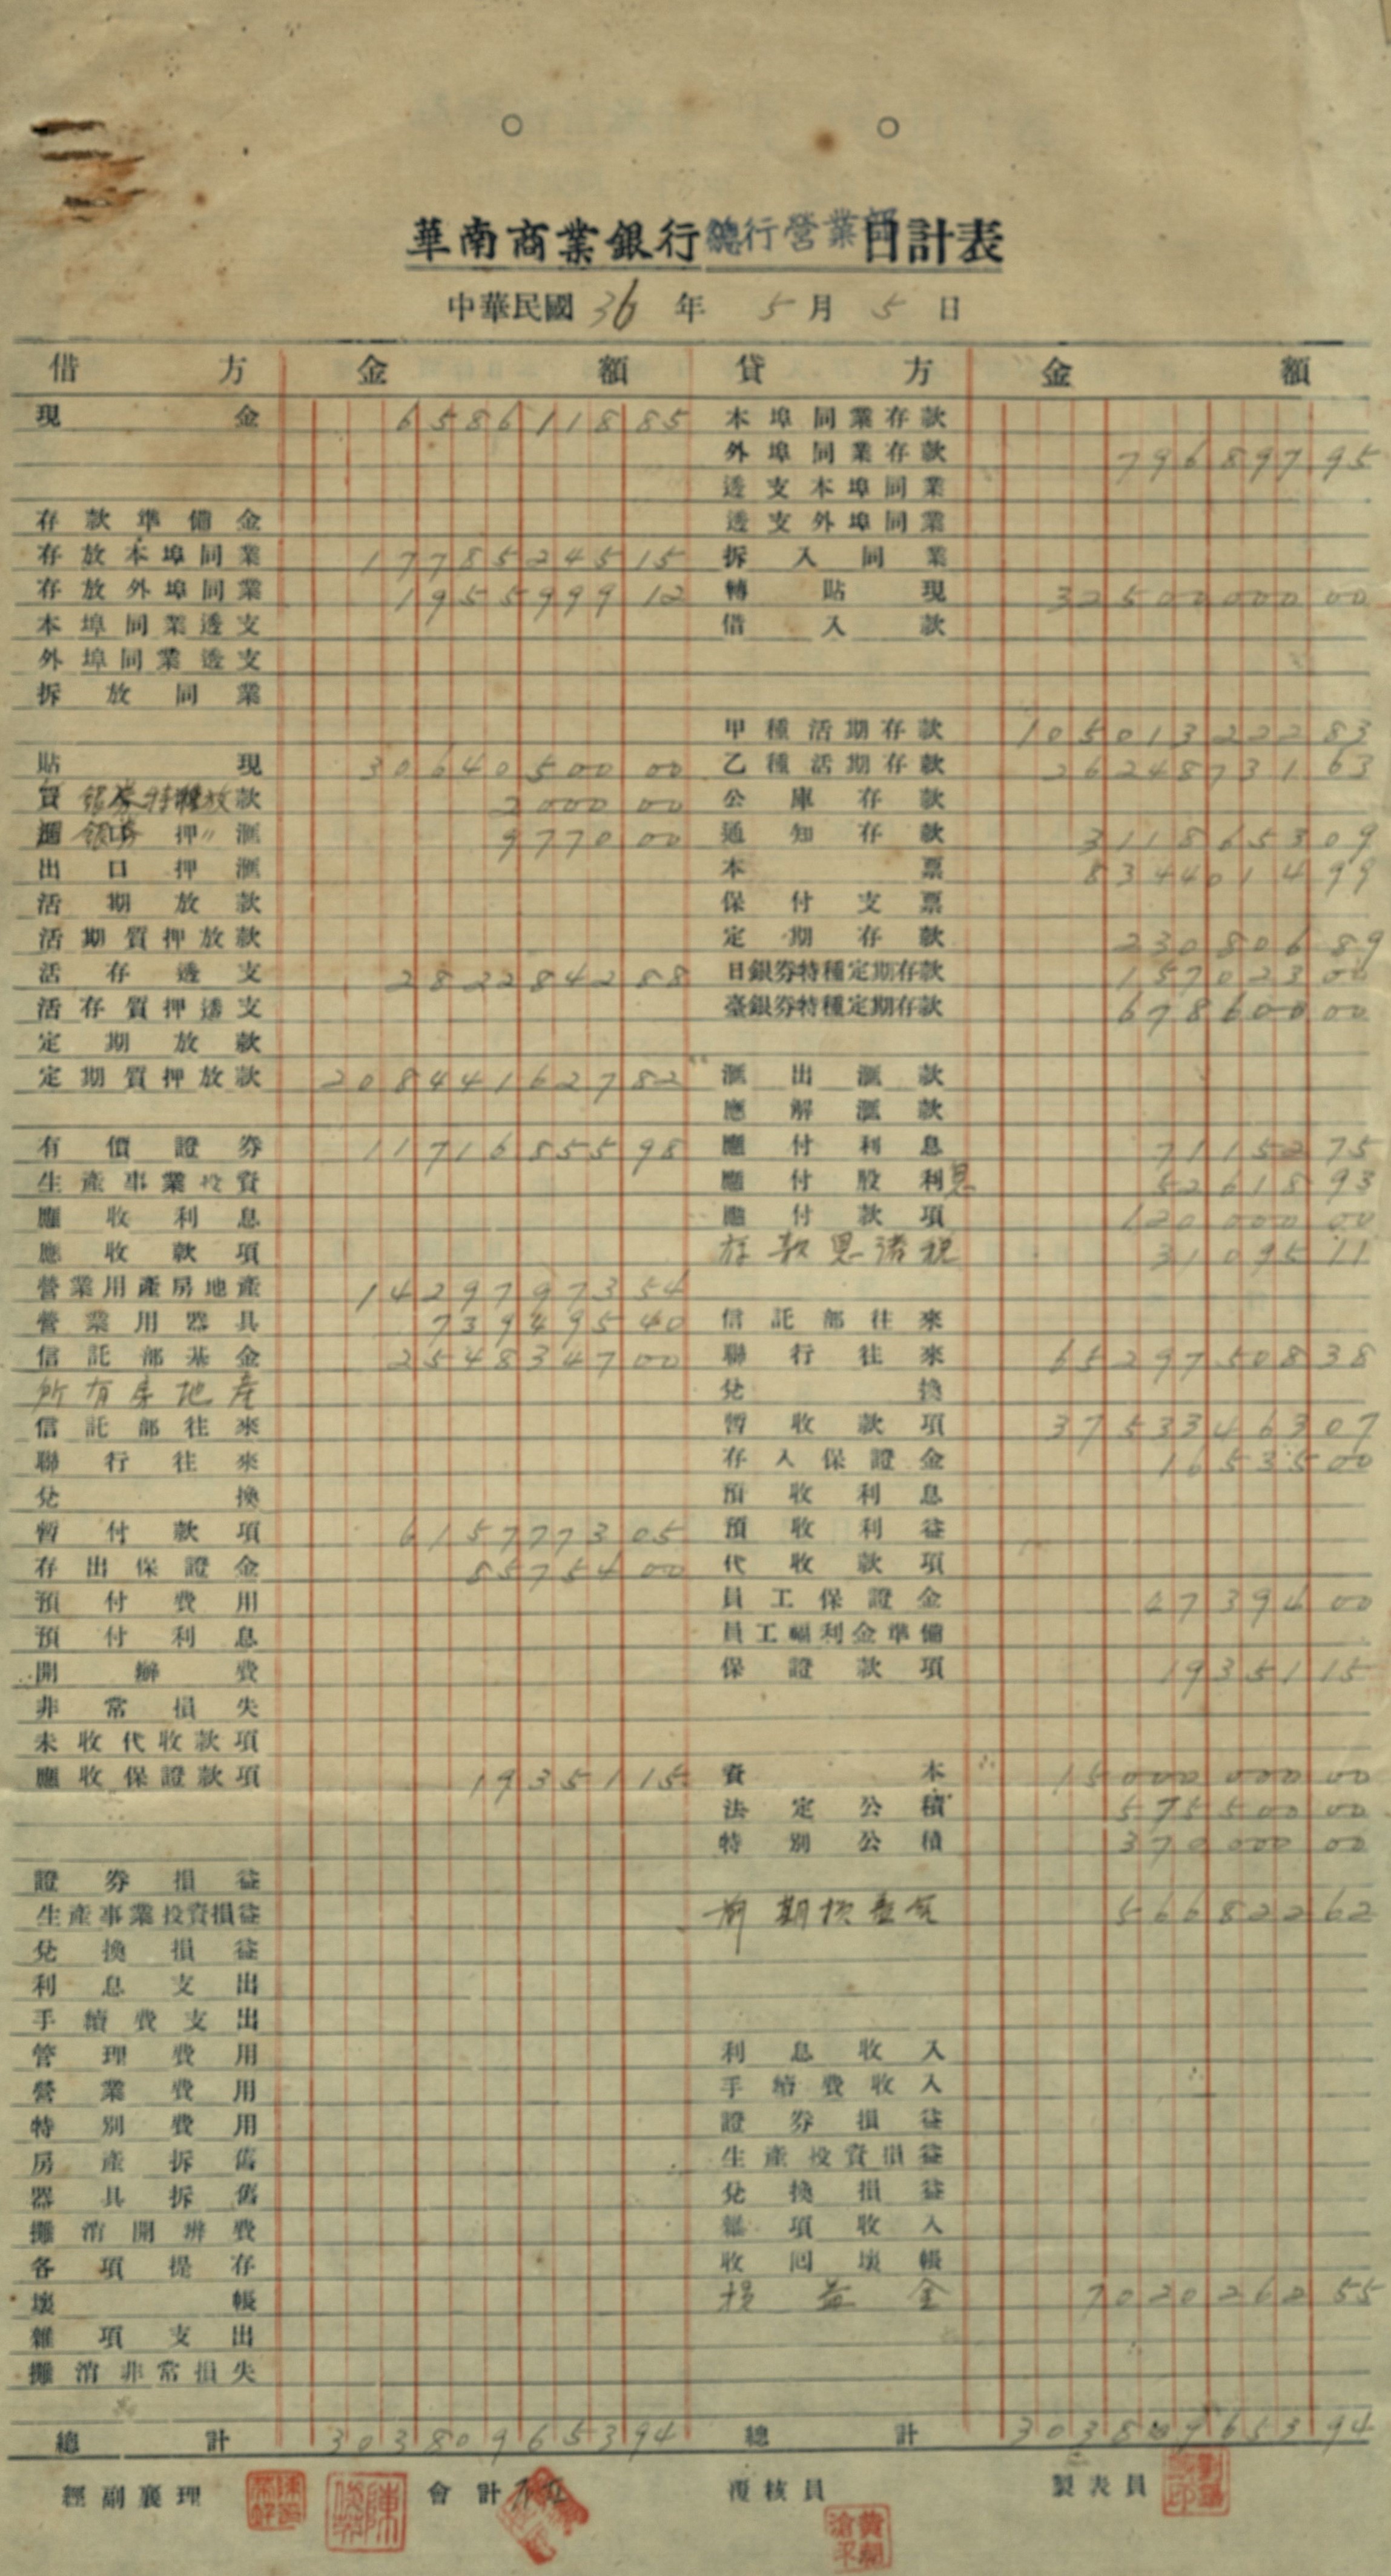 華南商業銀行總行營業部日計表
中華民國36年 5月 5日
借方 金額 貸方 金額
現金 6586118 85 本埠同業存款
外埠同業存款 796897 95
透支本埠同業
存款準備金 透支外埠同業
存放本埠同業 17785245 15 拆入同業
存放外埠同業 1955999 12 轉貼現 32500000 00
本埠同業透支 借入款
外埠同業透支
拆放同業
甲種活期存款 105013222 83
貼現 30640500 00 乙種活期存款 26248731 63
銀券特種放款 2000 00 公庫存款
銀券 〃 9770 00 通知存款 3118653 09
出口押滙 本票 8344014 99
活期放款 保付支票
活期質押放款 定期存款 230806 89
活存透支 2822842 88 日銀券特種定期存款 157023 00
活存質押透支 臺銀券特種定期存款 678600 00
定期放款
定期質押放款 208441627 82 滙出滙款
應解滙款
有價證券 11716855 98 應付利息 71152 75
生產事業投資 應付股利息 52618 93
應收利息 應付款項 120000 00
應收款項 存款息諸稅 31095 11
營業用產房地產 14297973 54
營業用器具 739495 40 信託部往來
信託部基金 2548347 00 聯行往來 65297508 38
所有房地產 兌換
信託部往來 暫收款項 37533463 07
聯行往來 存入保證金 16535 00
兌換 預收利息
暫付款項 6157773 05 預收利益
存出保證金 85754 00 代收款項
預付費用 員工保證金 47394 00
預付利息 員工福利金準備
開辦費 保證款項 19351 15
非常損失
未收代收款項
應收保證款項 19351 15 資本 15000000 00
法定公積 575500 00
特別公積 370000 00
證券損益
生產事業投資損益 前期損益金 566822 62
兌換損益
利息支出
手續費支出
管理費用 利息收入
營業費用 手續費收入
特別費用 證券損益
房產拆舊 生產投資損益
器具拆舊 兌換損益
攤消開辦費 雜項收入
各項提存 收回壞帳
壞帳 損益金 7020262 55
雜項支出
攤消非常損失
總計 303809653 94 總計 303809653 94
經副襄理 會計 覆核員 製表員